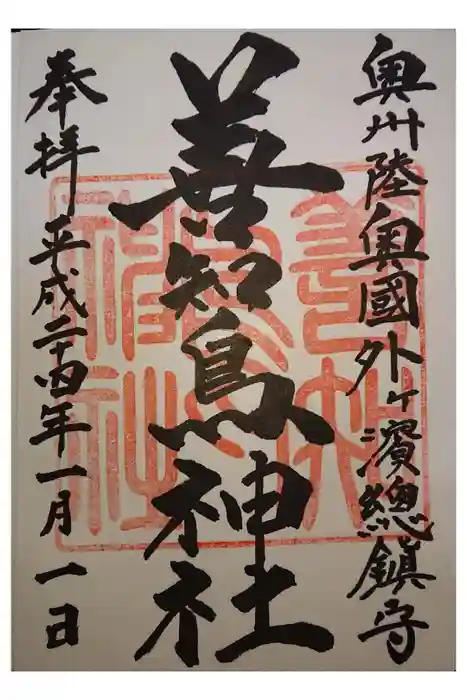 奥州陸奥國外ヶ濱總鎮守
善知鳥神社
奉拝 平成二十四年一月一日